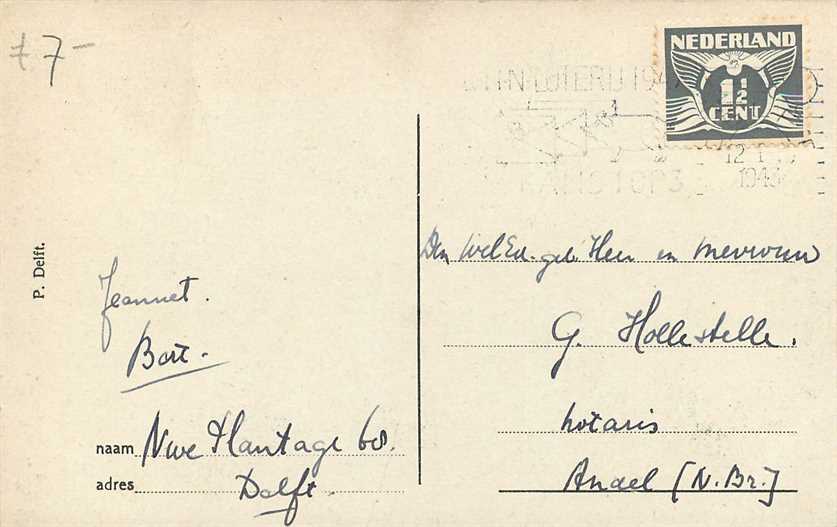 7-
NEDERLAND
1½
CENT
LOTERIJ 194
12
1943
KANS 1 OP 3
P. Delft.
Jeannet.
Bart.
naam Nwe Plantage 68.
adres Delft.
Den WelEd. geb. Heer en Mevrouw
G. Hollestelle.
notaris
Andel [N. Br.]